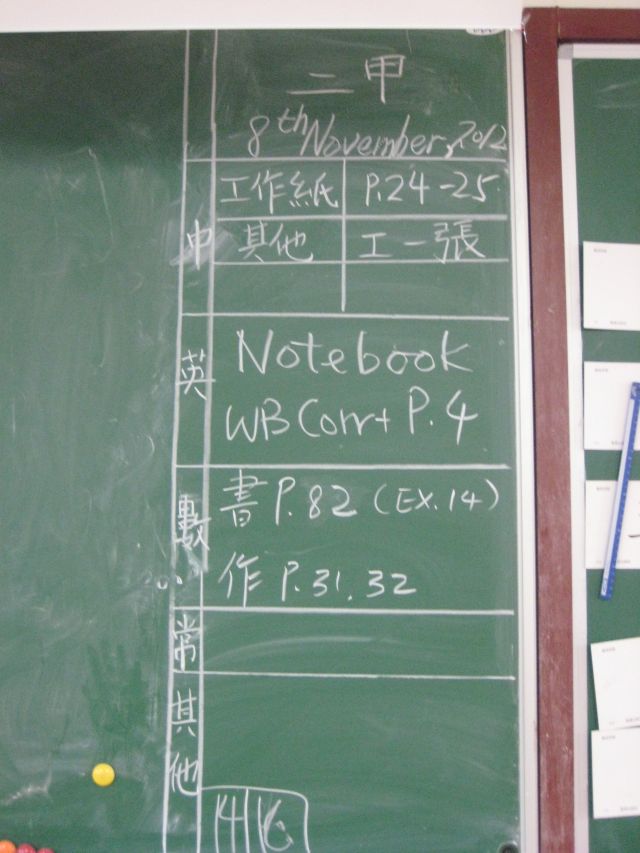 二甲
8th November, 2012
中
工作紙 P.24-25
其他 工一張
英
Notebook
WB Corr + P.4
數
書 P.82 (EX.14)
作 P.31.32
常
其他